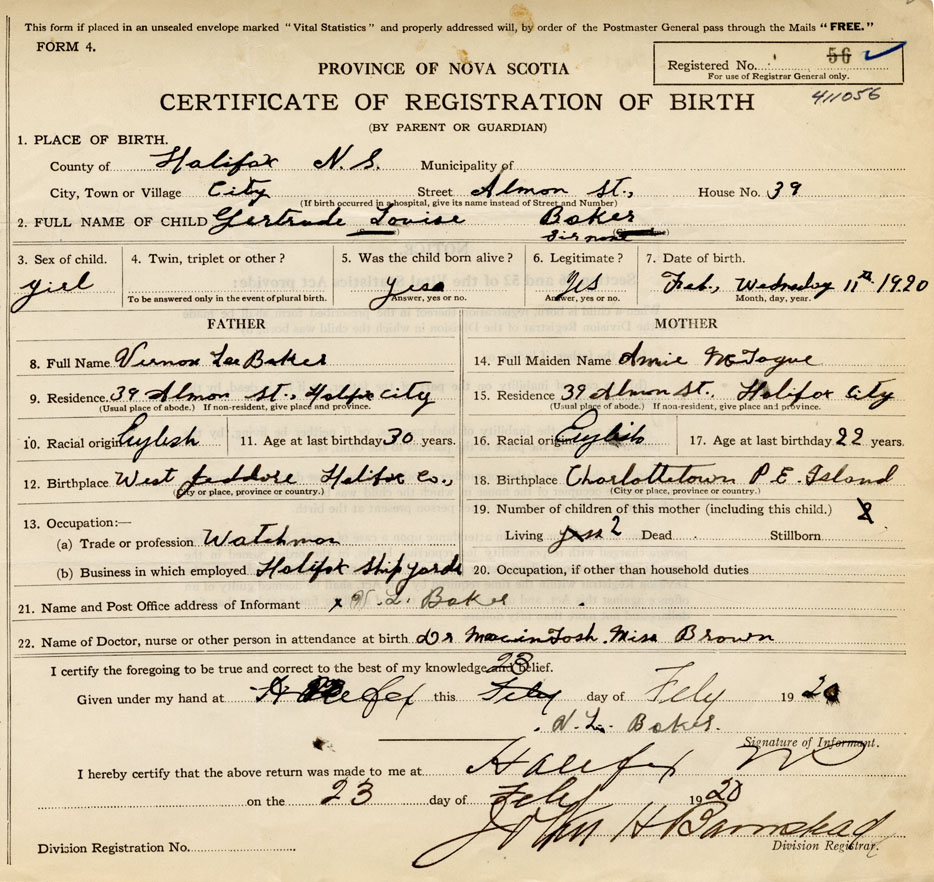 This form if placed in an unsealed envelope marked "Vital Statistics" and properly addressed will, by order of the Postmaster General pass through the Mails "FREE."
FORM 4.
Registered No. 56
For use of Registrar General only.
411056
PROVINCE OF NOVA SCOTIA
CERTIFICATE OF REGISTRATION OF BIRTH
(BY PARENT OR GUARDIAN)
1. PLACE OF BIRTH.
County of Halifax N. S. Municipality of
City, Town or Village City Street Almon St., House No. 39
(If birth occurred in a hospital, give its name instead of Street and Number)
2. FULL NAME OF CHILD Gertrude Louise Baker
Sirname
3. Sex of child. 4. Twin, triplet or other? 5. Was the child born alive? 6. Legitimate? 7. Date of birth.
girl yess yes Feb., Wednesday 11th 1920
To be answered only in the event of plural birth. Answer, yes or no. Answer, yes or no. Month, day, year.
FATHER MOTHER
8. Full Name Vernon Lee Baker 14. Full Maiden Name Amie McTague
9. Residence. 39 Almon St., Halifax City 15. Residence 39 Almon St. Halifax City
(Usual place of abode.) If non-resident, give place and province. (Usual place of abode.) If non-resident, give place and province.
10. Racial origin English 11. Age at last birthday 30 years. 16. Racial origin English 17. Age at last birthday 22 years.
12. Birthplace West Jeddore Halifax Co., 18. Birthplace Charlottetown P. E. Island
(City or place, province or country.) (City or place, province or country.)
13. Occupation:— 19. Number of children of this mother (including this child.) 2
(a) Trade or profession Watchman Living 2 Dead Stillborn
(b) Business in which employed Halifax Shipyards 20. Occupation, if other than household duties
21. Name and Post Office address of Informant x V. L. Baker
22. Name of Doctor, nurse or other person in attendance at birth Dr MacinTosh. Miss Brown
I certify the foregoing to be true and correct to the best of my knowledge and belief.
23
Given under my hand at Halifax this Feby day of Feby 1920
V. L. Baker.
Signature of Informant.
I hereby certify that the above return was made to me at Halifax
on the 23 day of Feby 1920
John H Barnstead
Division Registration No. Division Registrar.